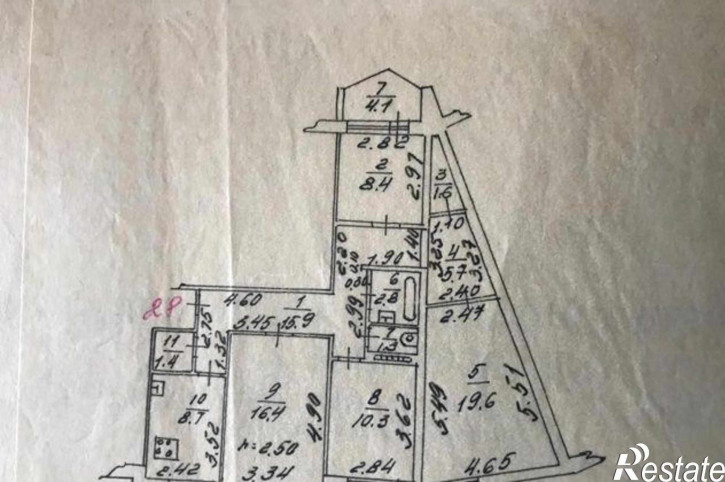 7
4.1
2.82
2
8.4
2.97
3
1.6
1.10
4
5.7
3.25
3.27
2.40
2.47
2.20
1.90
1.40
6
2.8
2.99
1.3
28
4.60
1
15.9
5.45
2.75
1.32
11
1.4
10
8.7
3.52
2.42
9
16.4
4.90
h=2.50
3.34
8
10.3
3.62
2.84
5
19.6
5.49
5.51
4.65
Restate